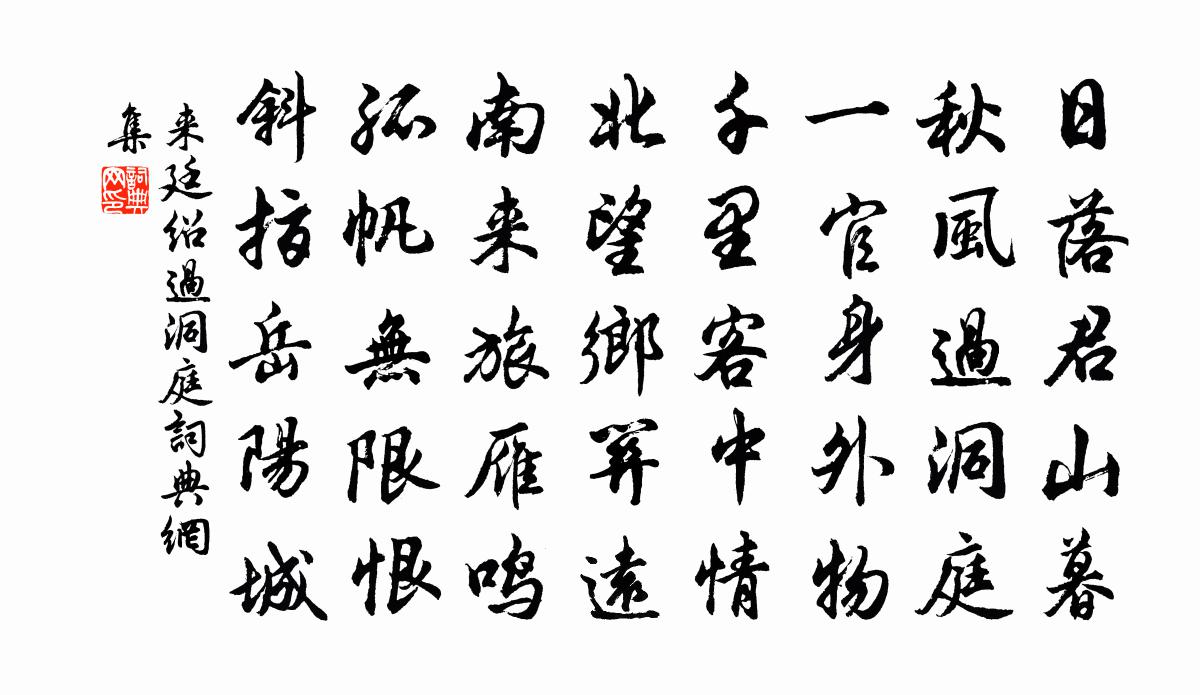 日落君山暮
秋風過洞庭
一官身外物
千里客中情
北望鄉關遠
南来旅雁鸣
孤帆無限恨
斜指岳陽城
来廷绍過洞庭詞典網
集
詞典网印